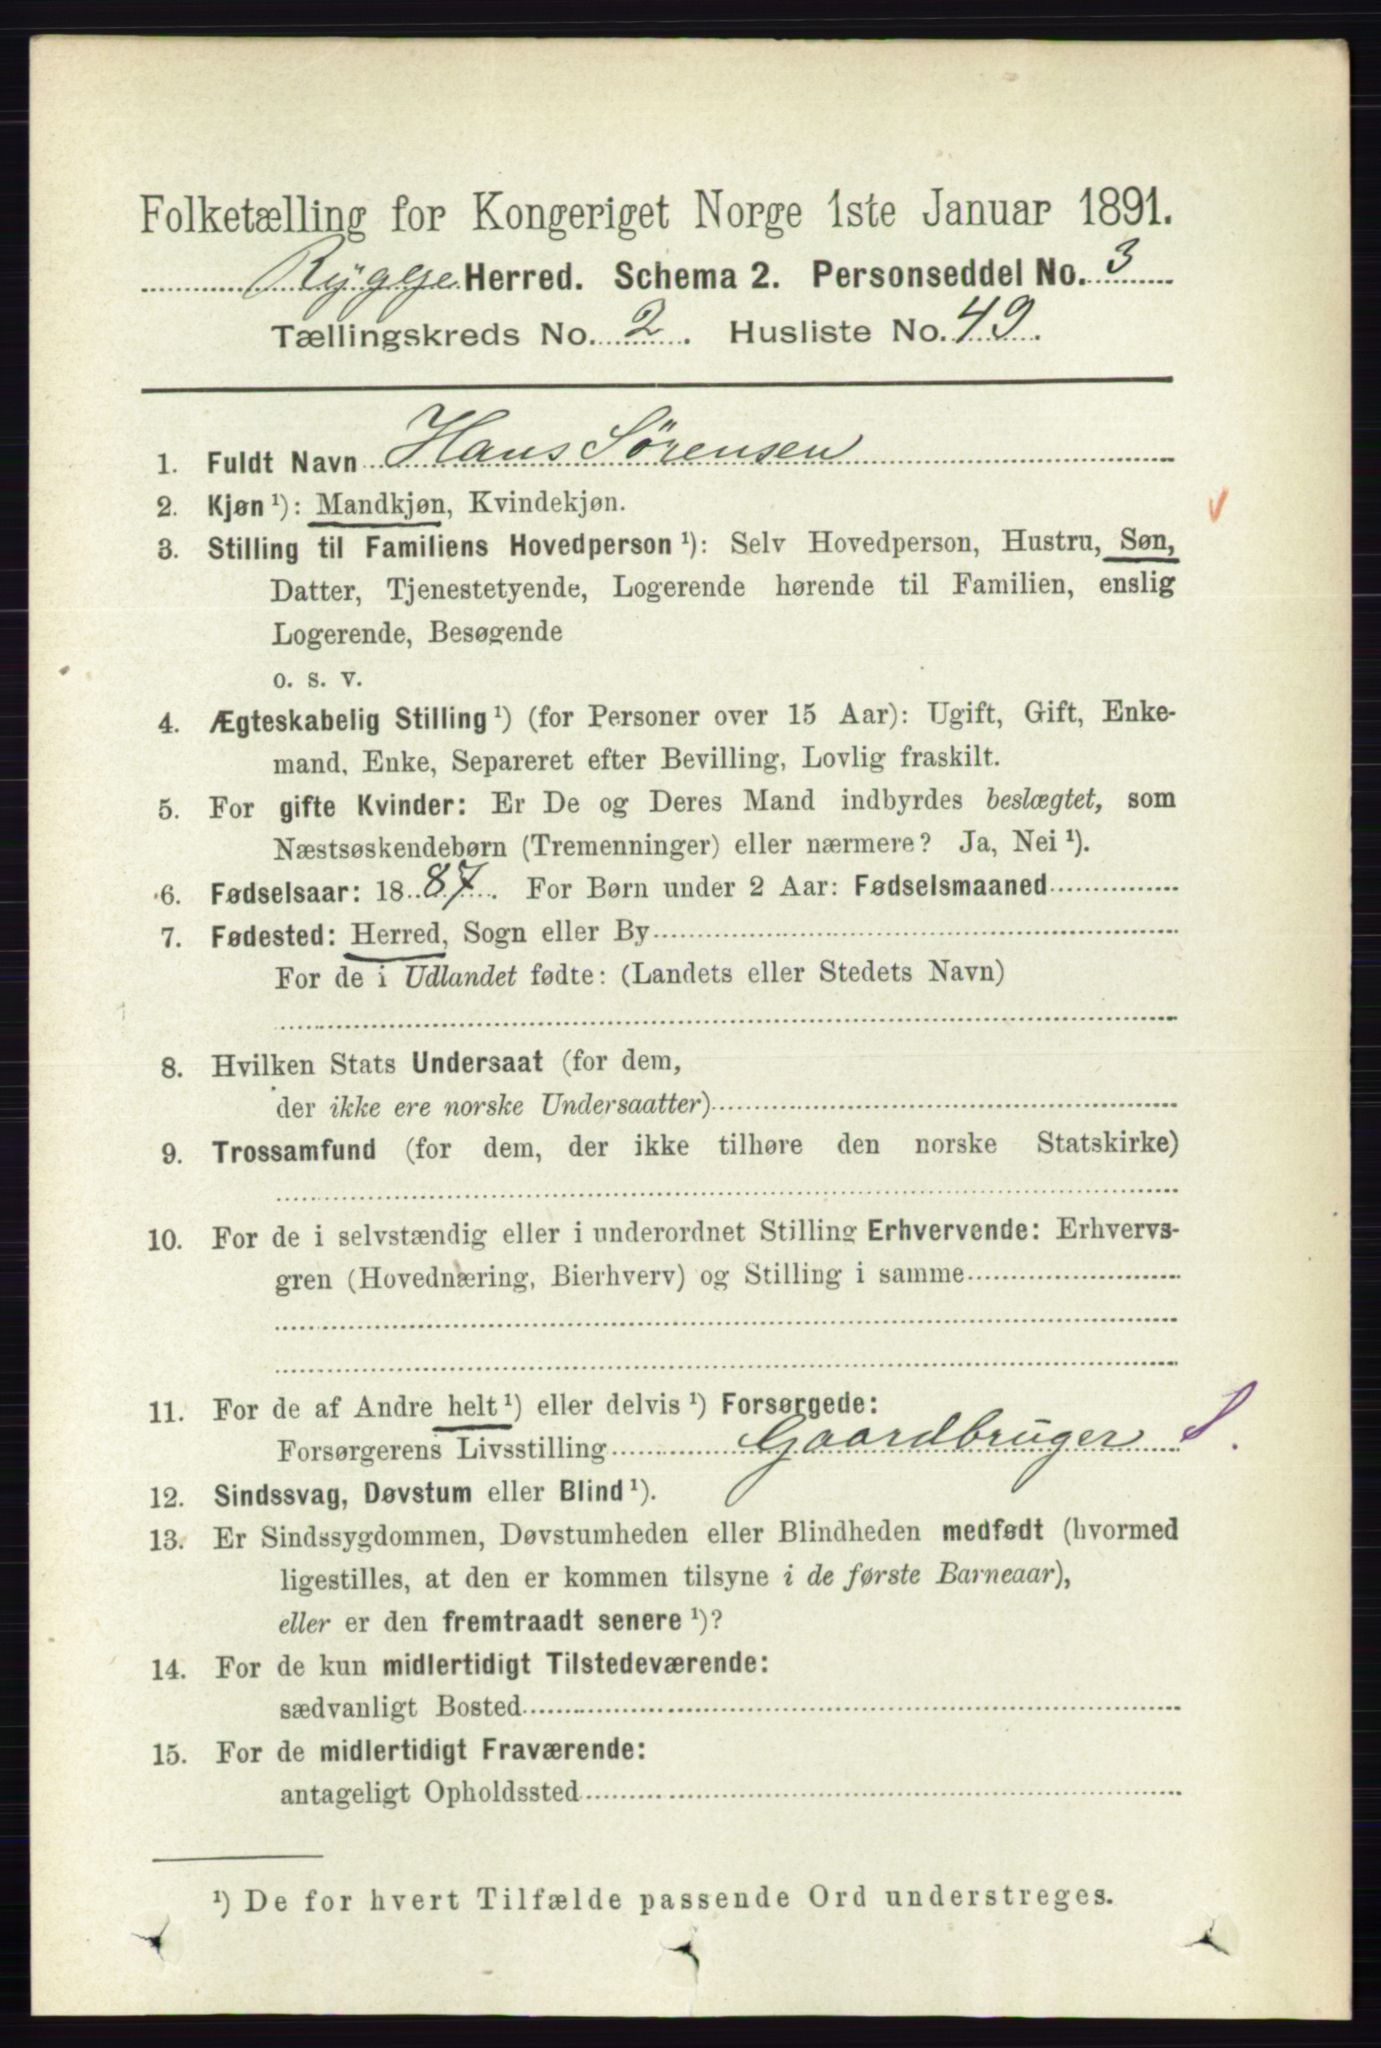 Folketælling for Kongeriget Norge 1ste Januar 1891.
Rygge Herred. Schema 2. Personseddel No. 3
Tællingskreds No. 2. Husliste No. 49.
1. Fuldt Navn Hans Sørensen
2. Kjøn ¹): Mandkjøn, Kvindekjøn.
3. Stilling til Familiens Hovedperson ¹): Selv Hovedperson, Hustru, Søn,
Datter, Tjenestetyende, Logerende hørende til Familien, enslig
Logerende, Besøgende
o. s. v.
4. Ægteskabelig Stilling ¹) (for Personer over 15 Aar): Ugift, Gift, Enke-
mand, Enke, Separeret efter Bevilling, Lovlig fraskilt.
5. For gifte Kvinder: Er De og Deres Mand indbyrdes beslægtet, som
Næstsøskendebørn (Tremenninger) eller nærmere? Ja, Nei ¹).
6. Fødselsaar: 1887. For Børn under 2 Aar: Fødselsmaaned
7. Fødested: Herred, Sogn eller By
For de i Udlandet fødte: (Landets eller Stedets Navn)
8. Hvilken Stats Undersaat (for dem,
der ikke ere norske Undersaatter)
9. Trossamfund (for dem, der ikke tilhøre den norske Statskirke)
10. For de i selvstændig eller i underordnet Stilling Erhvervende: Erhvervs-
gren (Hovednæring, Bierhverv) og Stilling i samme
11. For de af Andre helt ¹) eller delvis ¹) Forsørgede:
Forsørgerens Livsstilling Gaardbruger S.
12. Sindssvag, Døvstum eller Blind ¹).
13. Er Sindssygdommen, Døvstumheden eller Blindheden medfødt (hvormed
ligestilles, at den er kommen tilsyne i de første Barneaar),
eller er den fremtraadt senere ¹)?
14. For de kun midlertidigt Tilstedeværende:
sædvanligt Bosted
15. For de midlertidigt Fraværende:
antageligt Opholdssted
¹) De for hvert Tilfælde passende Ord understreges.